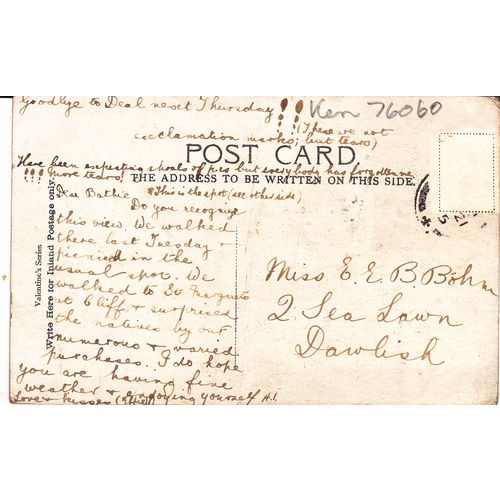 Goodbye to Deal next Thursday!!!
Ken 76060
(These are not
exclamation marks, but tears)
POST CARD.
Have been expecting shoals of p.cs but everybody has forgotten me
!!! More tears!
THE ADDRESS TO BE WRITTEN ON THIS SIDE.
Dear Bathie
*This is the spot (see other side)
Do you recognise
this view. We walked
there last Tuesday &
picnicd in the
usual spot. We
walked to St
at Cliff & surprised
the natives by our
numerous & varied
purchases. I do hope
you are having fine
weather & enjoying yourself
Love & kisses
Valentine's Series
Write Here for Inland Postage only.
Miss E. E. B Böhm
2 Sea Lawn
Dawlish
21
5